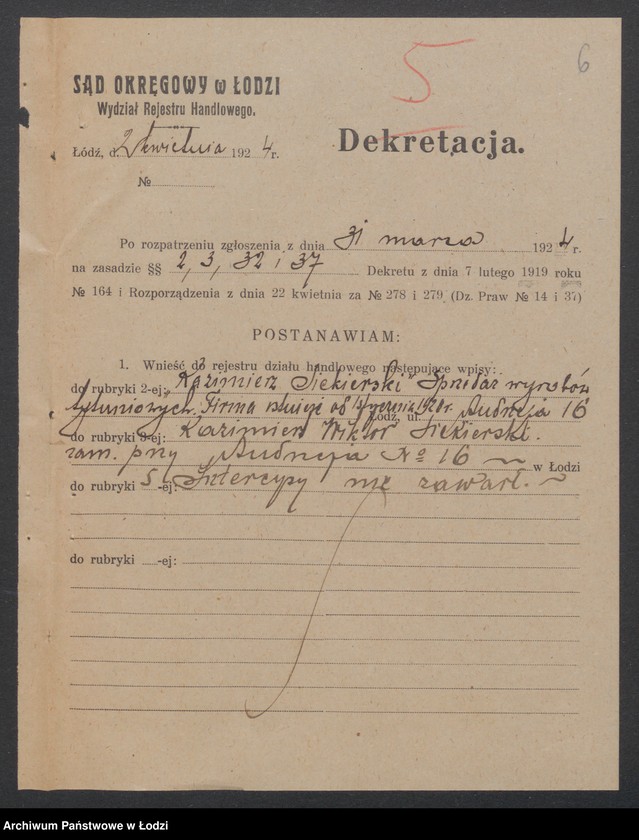 5
6
SĄD OKRĘGOWY w ŁODZI
Wydział Rejestru Handlowego.
Łódź, d. 2 kwietnia 1924 r.
№
Dekretacja.
Po rozpatrzeniu zgłoszenia z dnia 31 marca 1924 r.
na zasadzie §§ 2, 3, 32 i 37 Dekretu z dnia 7 lutego 1919 roku
№ 164 i Rozporządzenia z dnia 22 kwietnia za № 278 i 279 (Dz. Praw № 14 i 37)
POSTANAWIAM:
1. Wnieść do rejestru działu handlowego następujące wpisy:
do rubryki 2-ej: „Kazimierz Siekierski" Sprzedaż wyrobów
tytuniowych. Firma istnieje od 1920 r. Łódź, ul. Andrzeja 16
do rubryki 3-ej: Kazimierz Wiktor Siekierski.
zam. przy Andrzeja № 16 w Łodzi
do rubryki 5-ej: Intercyzy nie zawarł.
do rubryki -ej:
Archiwum Państwowe w Łodzi